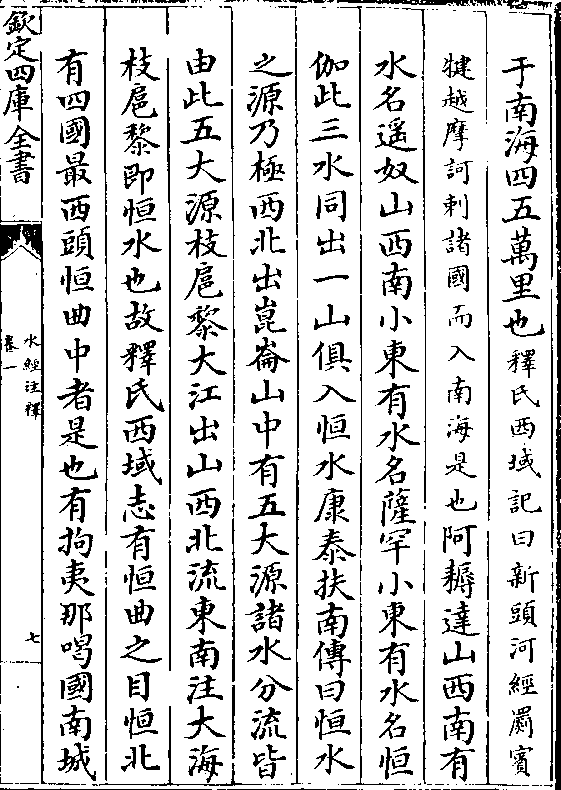 于南海四五萬里也釋氏西域記曰新頭河經罽賓
犍越摩訶剌諸國而入南海是也阿耨達山西南有
水名遥奴山西南小東有水名薩罕小東有水名恒
伽此三水同出一山俱入恒水康泰扶南傳曰恒水
之源乃極西北出崑崙山中有五大源諸水分流皆
由此五大源枝扈黎大江出山西北流東南注大海
枝扈黎即恒水也故釋氏西域志有恒曲之目恒北
有四國最西頭恒曲中者是也有拘夷那喝國南城
欽定四庫全書
水經注釋
卷一
七